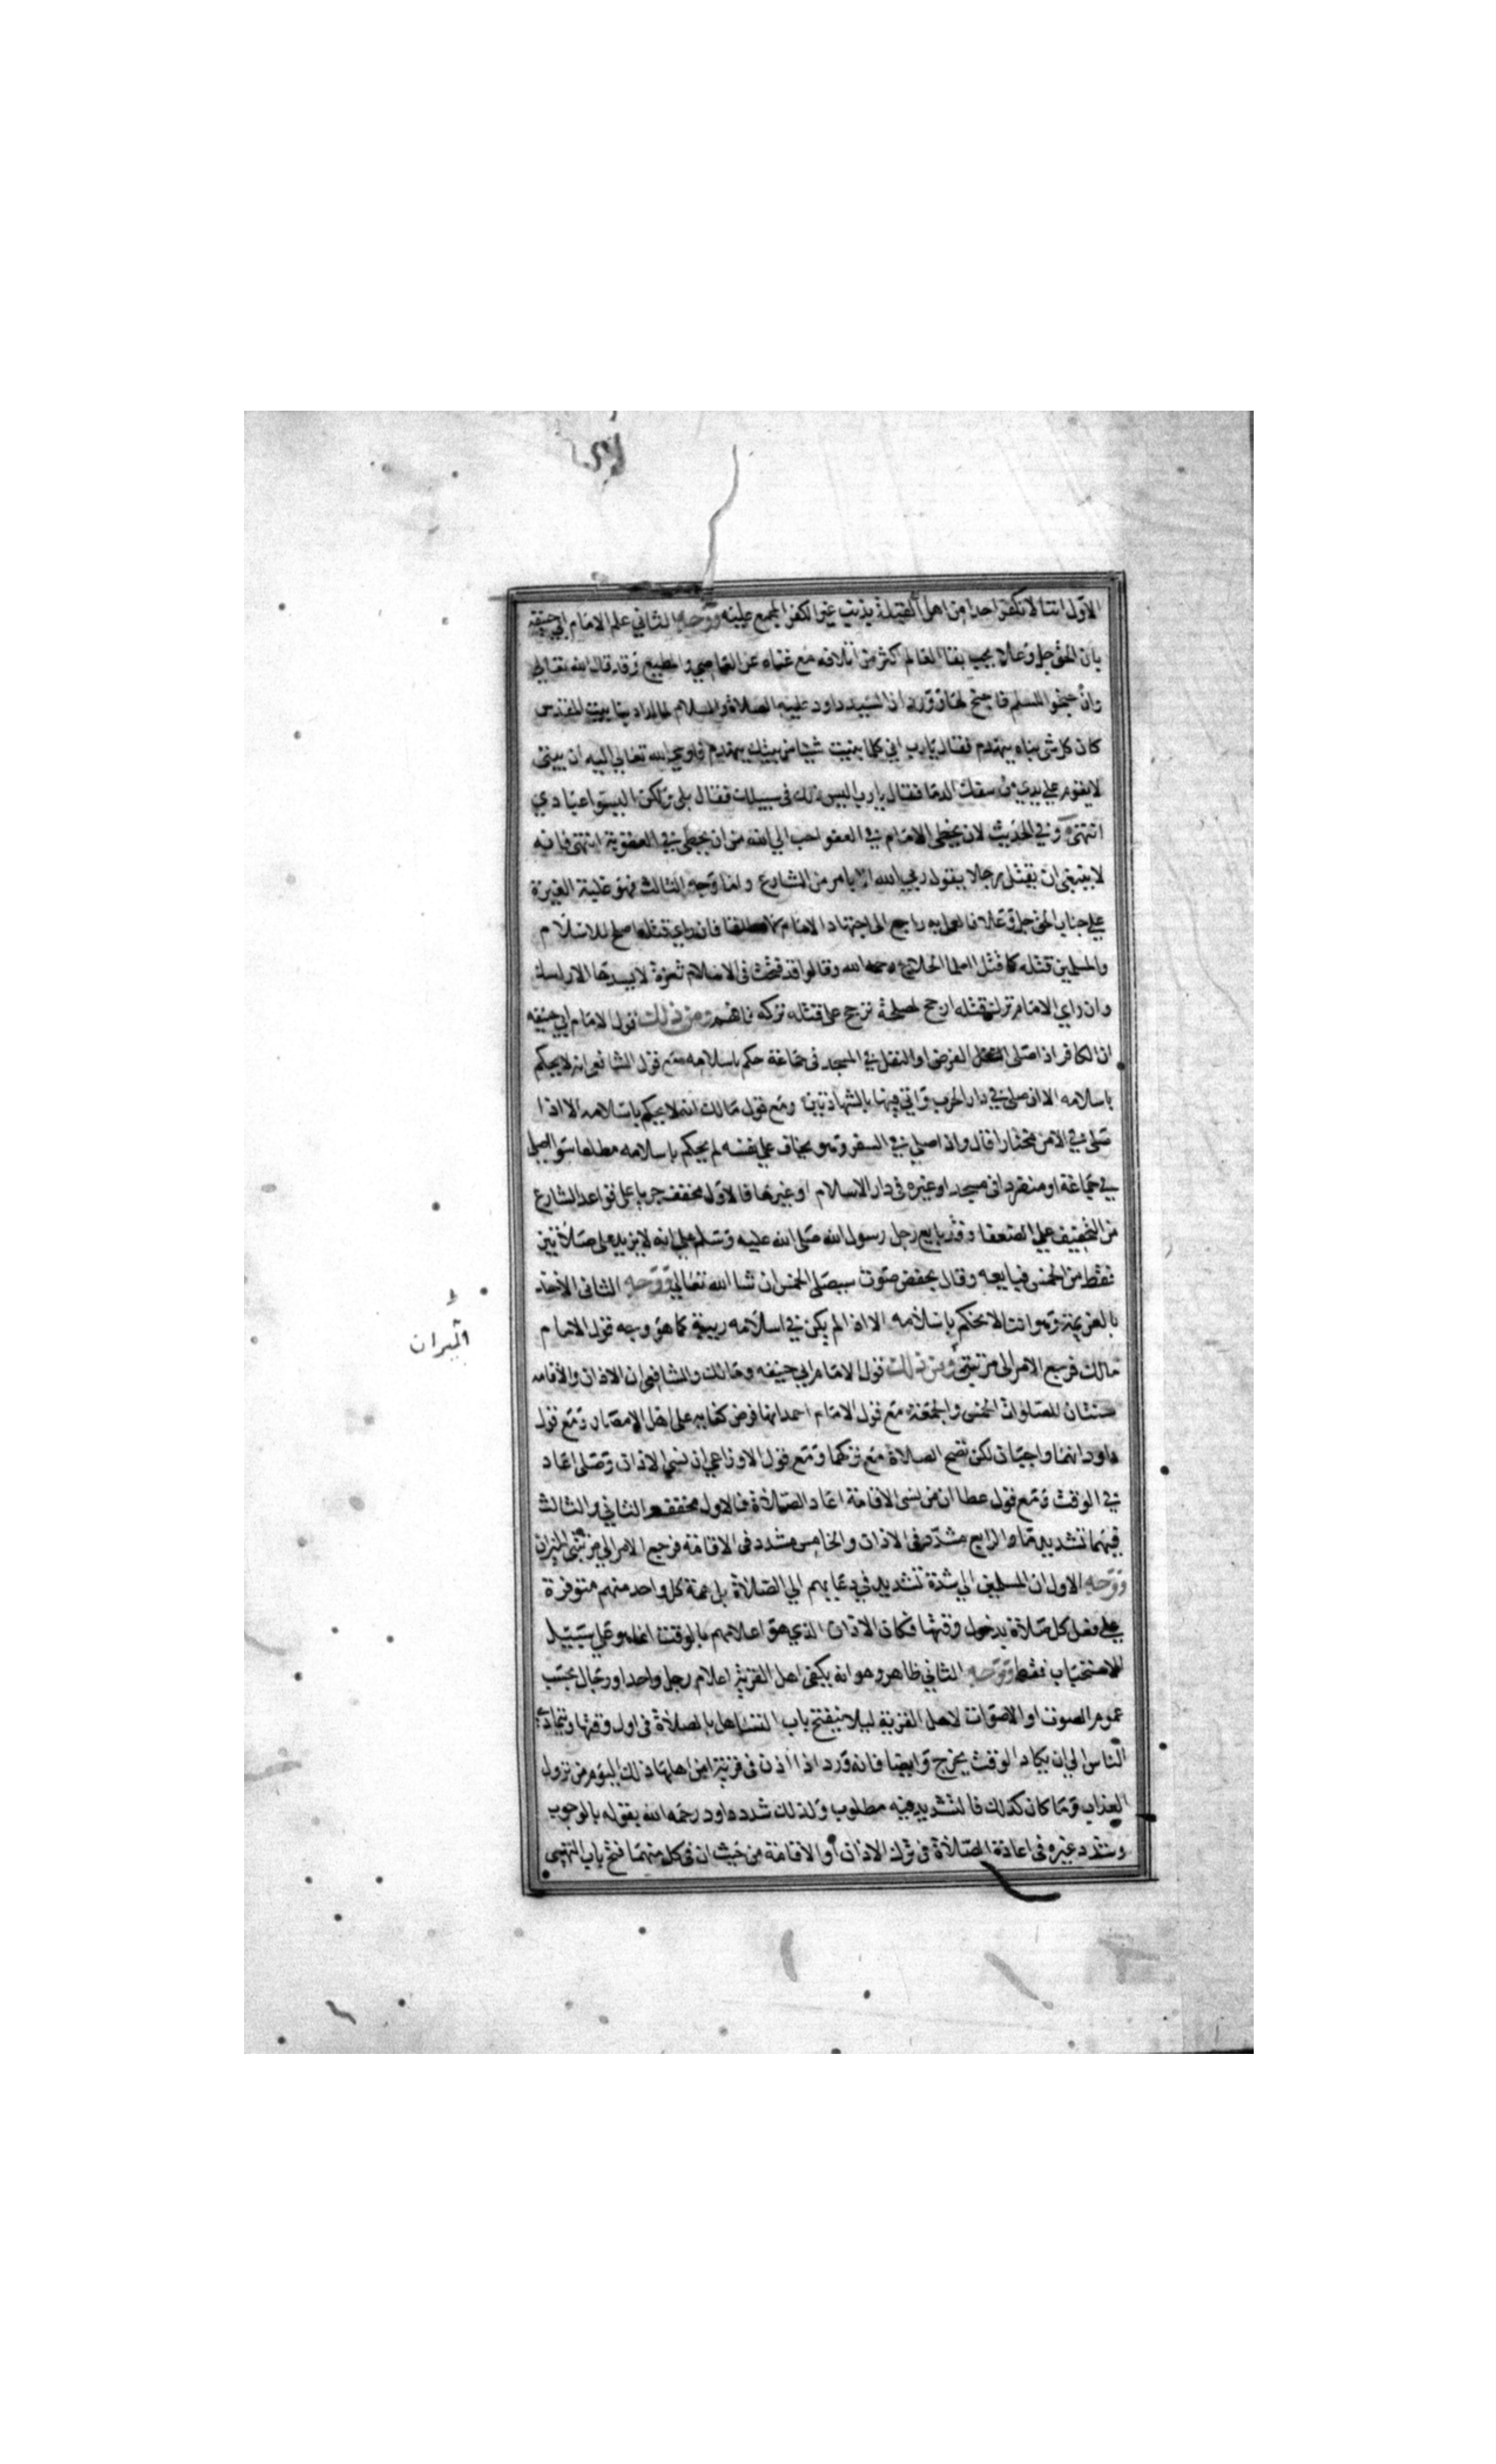 الاول اننا لا نكفر احدا من اهل القبلة بذنب غير الكفر المجمع عليه ووجه الثاني علم الامام ابي حنيفة
بان الحق جل وعلا يحب بقا العالم اكثر من اتلافه مع غناه عن العاصي والمطيع وقد قال الله تعالى
وان جنحوا للسلم فاجنح لها وورد ان السيد داود عليه الصلاة والسلام لما اراد بنا بيت المقدس
كان كل شي بناه ينهدم فقال يارب اني كلما بنيت شيئا من بيتك ينهدم فاوحى الله تعالى اليه ان بيتي
لا يقوم على يدي من سفك الدما فقال يارب اليس ذلك في سبيلك فقال بلى ولكن اليسوا عبادي
انتهى وفي الحديث لان يخطي الامام في العفو احب الى الله من ان يخطي في العقوبة انتهى فانه
لا ينبغي ان يقتل رجلا يقول ربي الله الا بامر من الشارع واما وجه الثالث فهو غلبة الغيرة
على جناب الحق جل وعلا فالعمل به راجع الى اجتهاد الامام فان راى قتله اصلح للاسلام
والمسلمين قتله كما قتل العلما الحلاج رحمه الله وقالوا قد فتحت في الاسلام ثغرة لا يسدها الا راسك
وان راى الامام ترك قتله ارجح لمصلحة ترجح على قتله تركه فافهم ومن ذلك قول الامام ابي حنيفة
ان الكافر اذا صلى الفرض او النفل في المسجد في جماعة حكم باسلامه مع قول الشافعي انه لا يحكم
باسلامه الا ان صلى في دار الحرب واتي فيها بالشهادتين ومع قول مالك انه لا يحكم باسلامه الا اذا
صلى في الامن مختارا قال واذا صلي في السفر وهو يخاف على نفسه لم يحكم باسلامه مطلقا سوا صلى
في جماعة او منفردا في مسجد او غيره في دار الاسلام او غيرها فالاول مخفف جريا على قواعد الشارع
من التخفيف على الضعفا وقد بايع رجل رسول الله صلى الله عليه وسلم على انه لا يزيد على صلاتين
فقط من الخمس فبايعه وقال بخفض صوت سيصلي الخمس ان شا الله تعالى ووجه الثاني الاخذ
بالعزيمة وهو اننا لا نحكم باسلامه الا اذا لم يكن في اسلامه ريبة كما هو وجه قول الامام
مالك فرجع الامر الى مرتبتي ومن ذلك قول الامام ابي حنيفه ومالك والشافعي ان الاذان والاقامه
سنتان للصلوات الخمس والجمعة مع قول الامام احمد انها فرض كفايه على اهل الامصار ومع قول
داود انهما واجبان لكن تصح الصلاة مع تركهما ومع قول الاوزاعي ان نسي الاذان وصلى اعاد
في الوقت ومع قول عطا ان من نسى الاقامة اعاد الصلاة فالاول مخفف والثاني والثالث
فيهما تشديد ما والرابع مشدد في الاذان والخامس مشدد في الاقامة فرجع الامر الى مرتبتي الميزان
ووجه الاول ان المسلمين الى شدة تشديد في دعايهم الى الصلاة بل همة كل واحد منهم متوفرة
على فعل كل صلاة بدخول وقتها فكان الاذان الذي هو اعلامهم بالوقت انما هو على سبيل
الاستحباب فقط ووجه الثاني ظاهر وهو انه يكفي اهل القرية اعلام رجل واحد او رجال بحسب
عموم الصوت او الاصوات لاهل القرية ليلا ينفتح باب التساهل بالصلاة في اول وقتها ويتمادى
الناس الى ان يكاد الوقت يخرج وايضا فانه ورد اذا اذن في قرية امن اهلها ذلك اليوم من نزول
العذاب وما كان كذلك فالتشديد فيه مطلوب ولذلك شدد داود رحمه الله بقوله بالوجوب
وشدد غيره في اعادة الصلاة في ترك الاذان او الاقامة من حيث ان في كل منهما فتح باب التهيي
الميزان